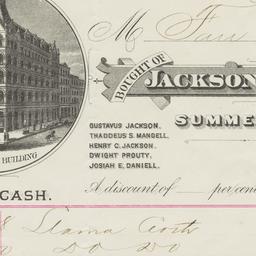 M Farr
BOUGHT OF
JACKSON
SUMME
BUILDING
GUSTAVUS JACKSON,
THADDEUS S. MANGELL,
HENRY C. JACKSON,
DWIGHT PROUTY,
JOSIAH E. DANIELL.
CASH.
A discount of per cent
Llama
Do Do